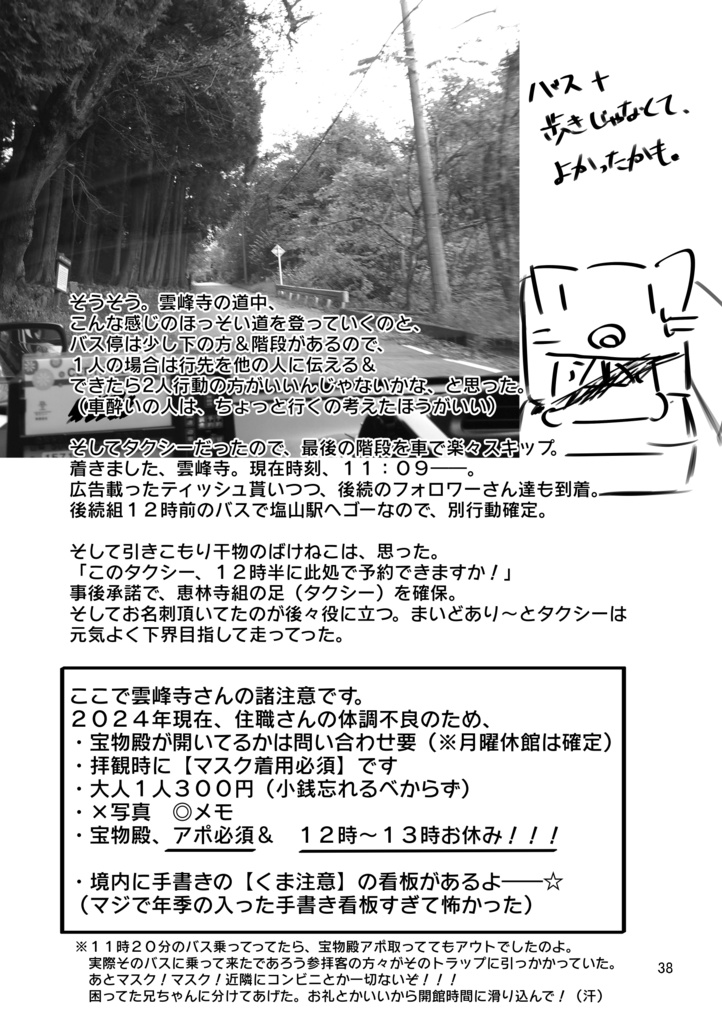 バス＋
歩きじゃなくて、
よかったかも。
そうそう。雲峰寺の道中、
こんな感じのほっそい道を登っていくのと、
バス停は少し下の方＆階段があるので、
１人の場合は行先を他の人に伝える＆
できたら2人行動の方がいいんじゃないかな、と思った。
（車酔いの人は、ちょっと行くの考えたほうがいい）
そしてタクシーだったので、最後の階段を車で楽々スキップ。
着きました、雲峰寺。現在時刻、１１：０９――。
広告載ったティッシュ貰いつつ、後続のフォロワーさん達も到着。
後続組１２時前のバスで塩山駅へゴーなので、別行動確定。
そして引きこもり干物のばけねこは、思った。
「このタクシー、１２時半に此処で予約できますか！」
事後承諾で、恵林寺組の足（タクシー）を確保。
そしてお名刺頂いてたのが後々役に立つ。まいどあり～とタクシーは
元気よく下界目指して走ってった。
ここで雲峰寺さんの諸注意です。
２０２４年現在、住職さんの体調不良のため、
・宝物殿が開いてるかは問い合わせ要（※月曜休館は確定）
・拝観時に【マスク着用必須】です
・大人１人３００円（小銭忘れるべからず）
・×写真　◎メモ
・宝物殿、アポ必須＆　１２時～１３時お休み！！！
・境内に手書きの【くま注意】の看板があるよ――☆
（マジで年季の入った手書き看板すぎて怖かった）
※１１時２０分のバス乗ってってたら、宝物殿アポ取っててもアウトでしたのよ。
実際そのバスに乗って来たであろう参拝客の方々がそのトラップに引っかかっていた。
あとマスク！マスク！近隣にコンビニとか一切ないぞ！！！
困ってた兄ちゃんに分けてあげた。お礼とかいいから開館時間に滑り込んで！（汗）
38